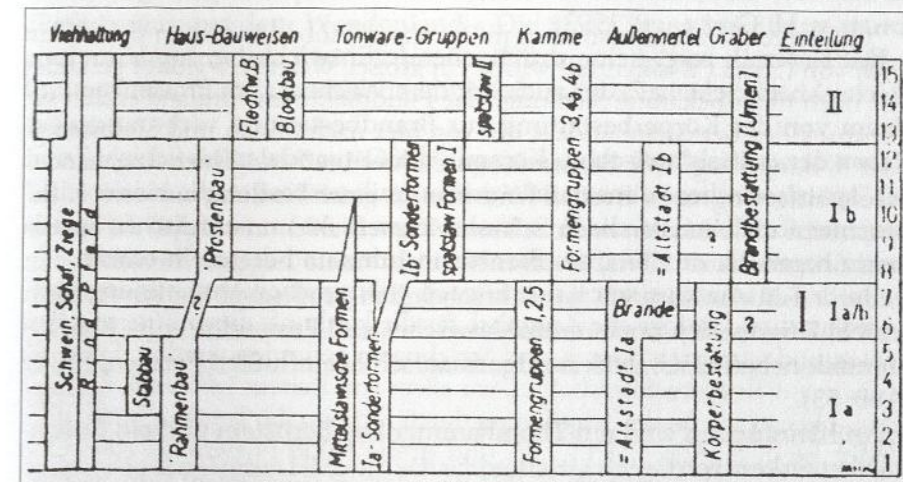 Viehhaltung Haus-Bauweisen Tonware-Gruppen Kämme Außenviertel Gräber Einteilung
Schwein, Schaf, Ziege
Rind Pferd
Stabbau
Rahmenbau
?
Pfostenbau
Flechtw B.
Blockbau
Mittelslawische Formen
Ia-Sonderformen
Ib-Sonderformen
spätslaw Formen I
spätslaw II
Formengruppen 1,2,5
Formengruppen 3,4a, 4b
=Altstadt Ia
Brände
=Altstadt Ib
Körperbestattung
?
?
Brandbestattung [Urnen]
II
Ib
Ia/b
Ia
15
14
13
12
11
10
9
8
7
6
5
4
3
2
1